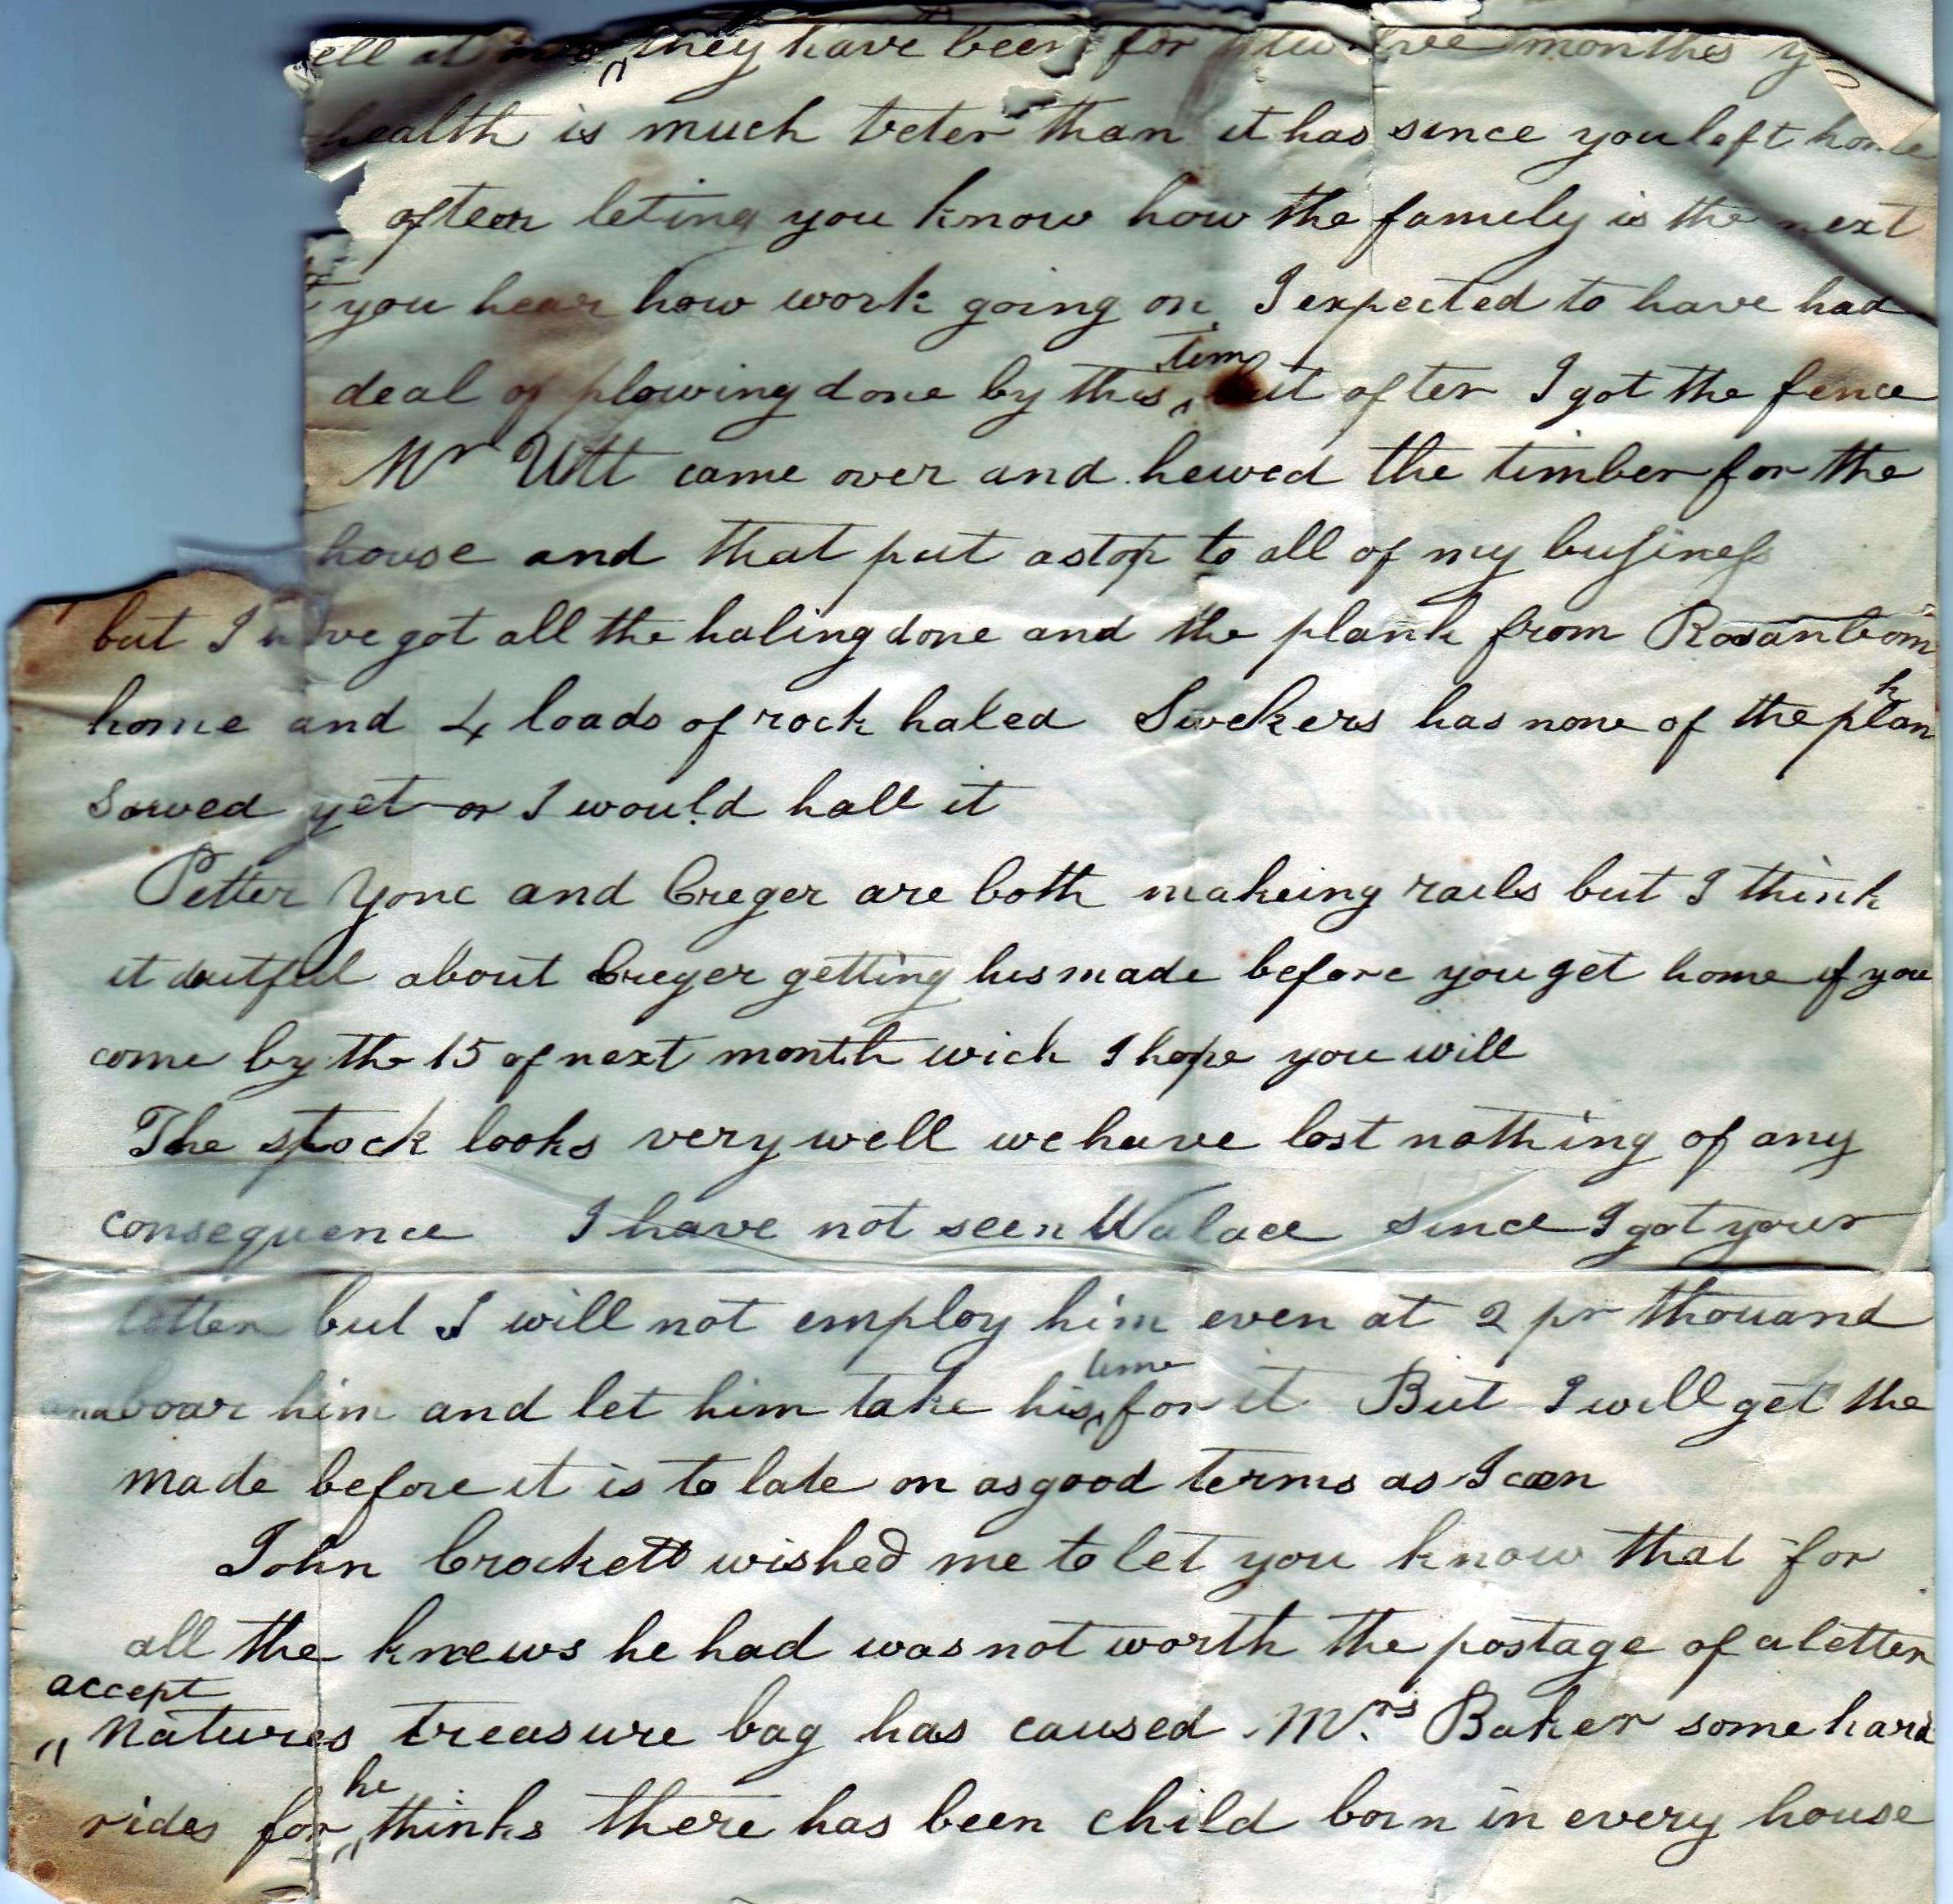 they have been for months
health is much beter than it has since you left home
after leting you know how the family is the next
you hear how work going on I expected to have had
deal of plowing done by this tim but after I got the fence
Mr Utt came over and hewed the timber for the
house and that put a stop to all of my busineſs
but I have got all the haling done and the plank from Rosanbom
home and 4 loads of rock haled Swekers has none of the plank
sawed yet or I would hall it
Petter Yonc and Creger are both makeing rails but I think
it doutful about Creger getting his made before you get home if you
come by the 15 of next month wich I hope you will
The stock looks very well we have lost nothing of any
consequence I have not seen Walace since I got your
letter but I will not employ him even at 2 pr thouand
and boar him and let him take his time for it But I will get the
made before it is to late on as good terms as I can
John Crockett wished me to let you know that for
all the knews he had was not worth the postage of a letter
accept natures treasure bag has caused Mrs Baker some hard
rides for he thinks there has been child born in every house